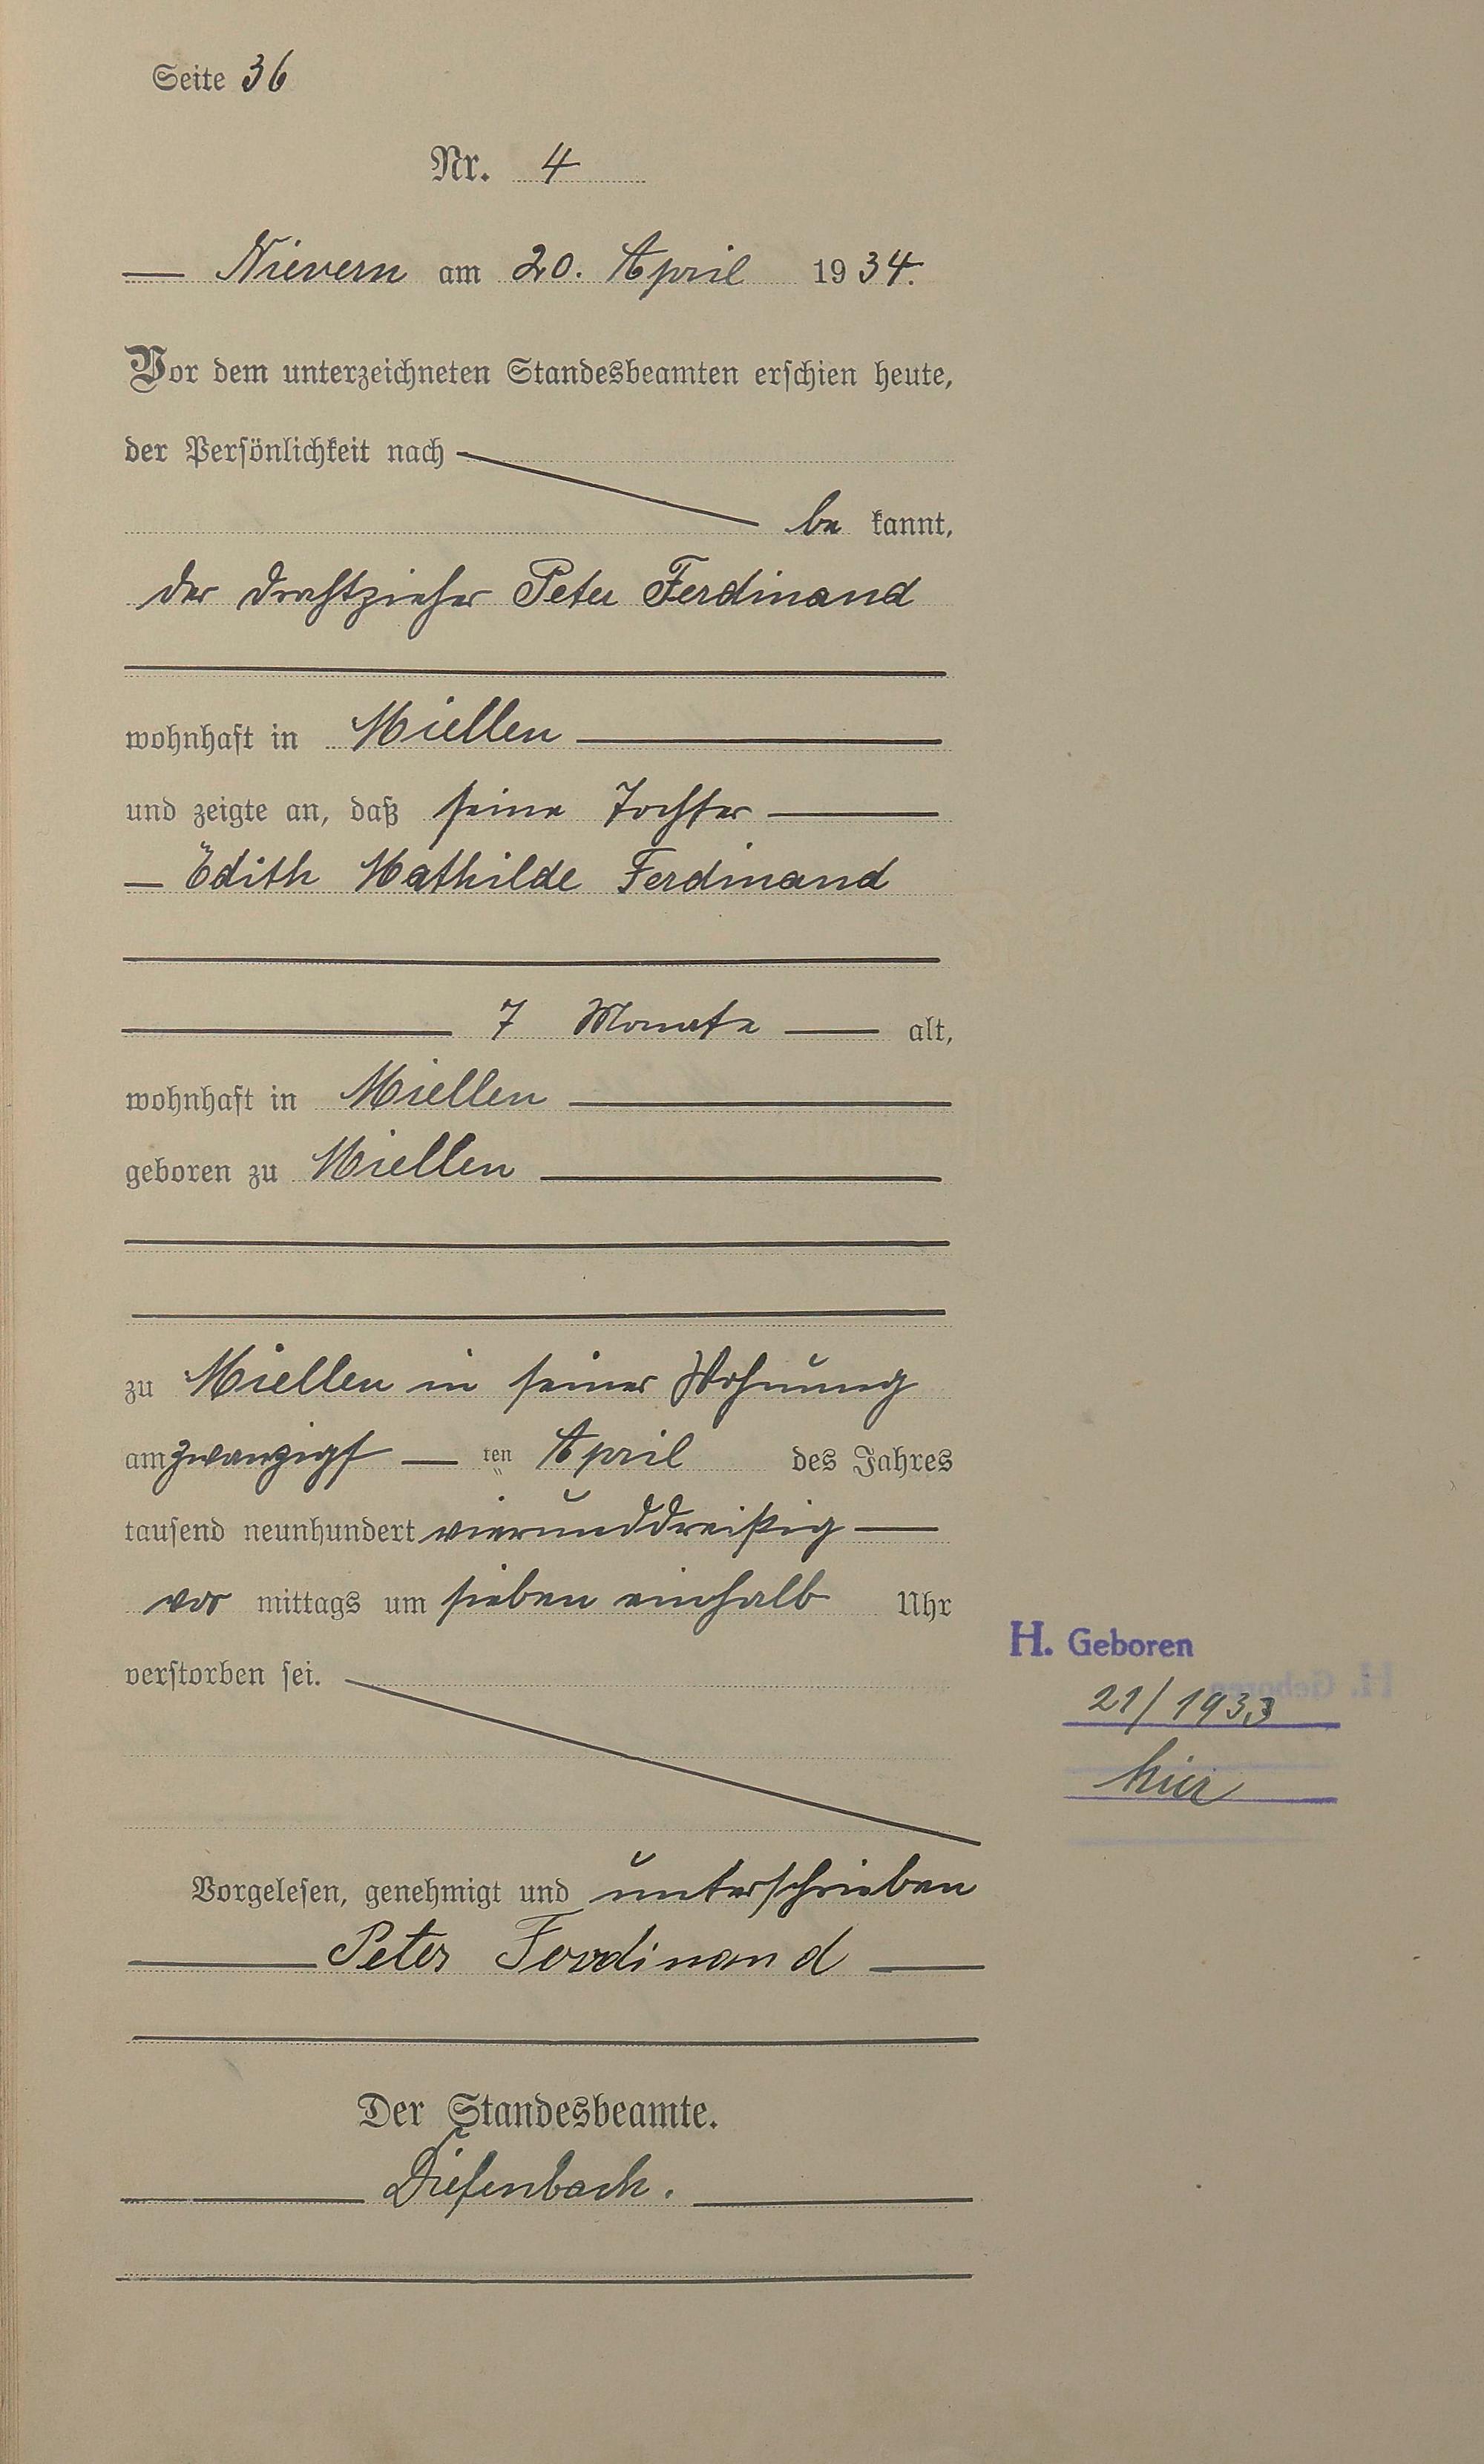 Seite 36
Nr. 4
— Nievern am 20. April 1934.
Vor dem unterzeichneten Standesbeamten erschien heute,
der Persönlichkeit nach
be kannt,
der Drahtzieher Peter Ferdinand
wohnhaft in Miellen —
und zeigte an, daß seine Tochter —
— Edith Mathilde Ferdinand
— 7 Monate — alt,
wohnhaft in Miellen —
geboren zu Miellen —
zu Miellen in seiner Wohnung
am zwanzigs — ten April des Jahres
tausend neunhundert vierunddreißig —
vor mittags um sieben einhalb Uhr
verstorben sei.
H. Geboren
21/1933
hier
Vorgelesen, genehmigt und unterschrieben
— Peter Ferdinand —
Der Standesbeamte.
— Diefenbach. —